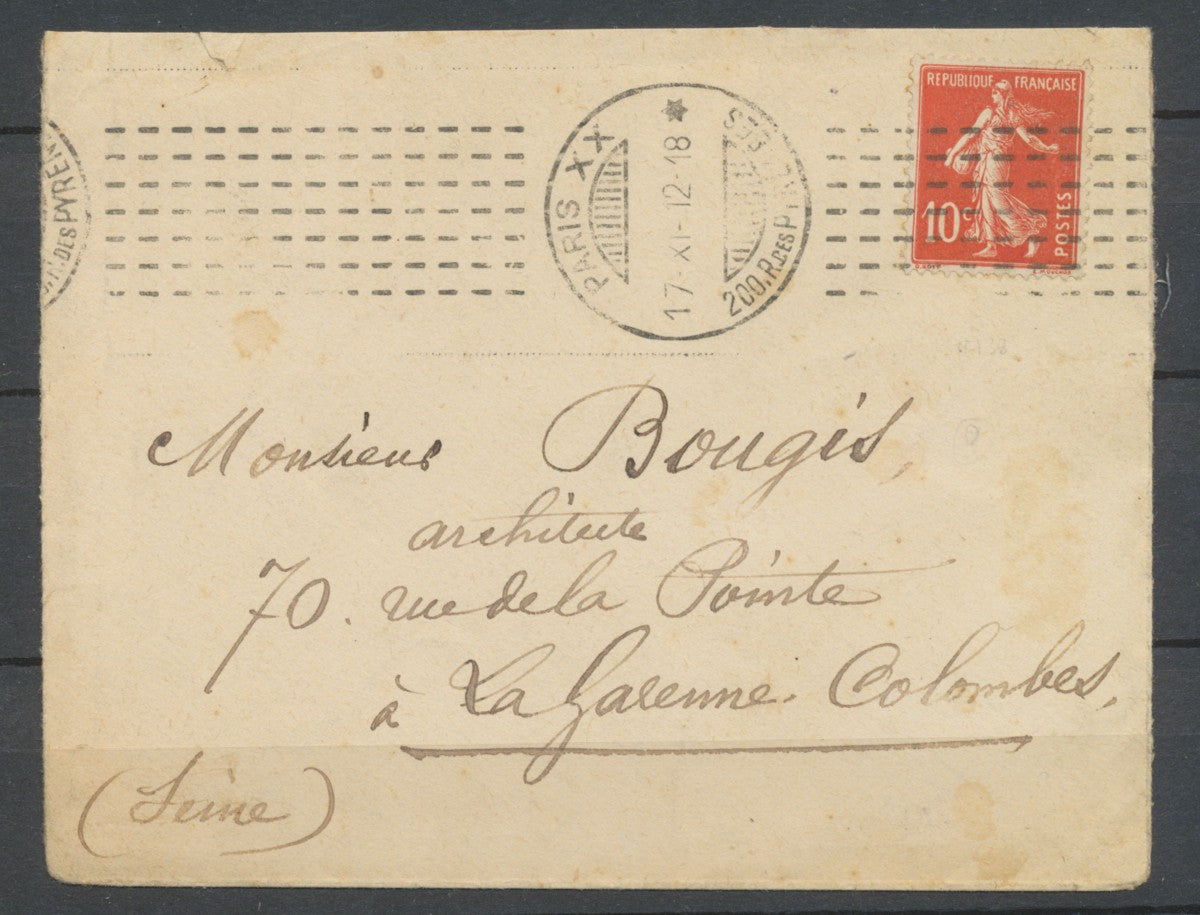 REPUBLIQUE FRANÇAISE
10c
POSTES
PARIS XX
17-XI-12-18
200.R. DES
DES PYREN
Monsieur Bougis,
architecte
70. rue de la Pointe
à La Garenne-Colombes,
(Seine)